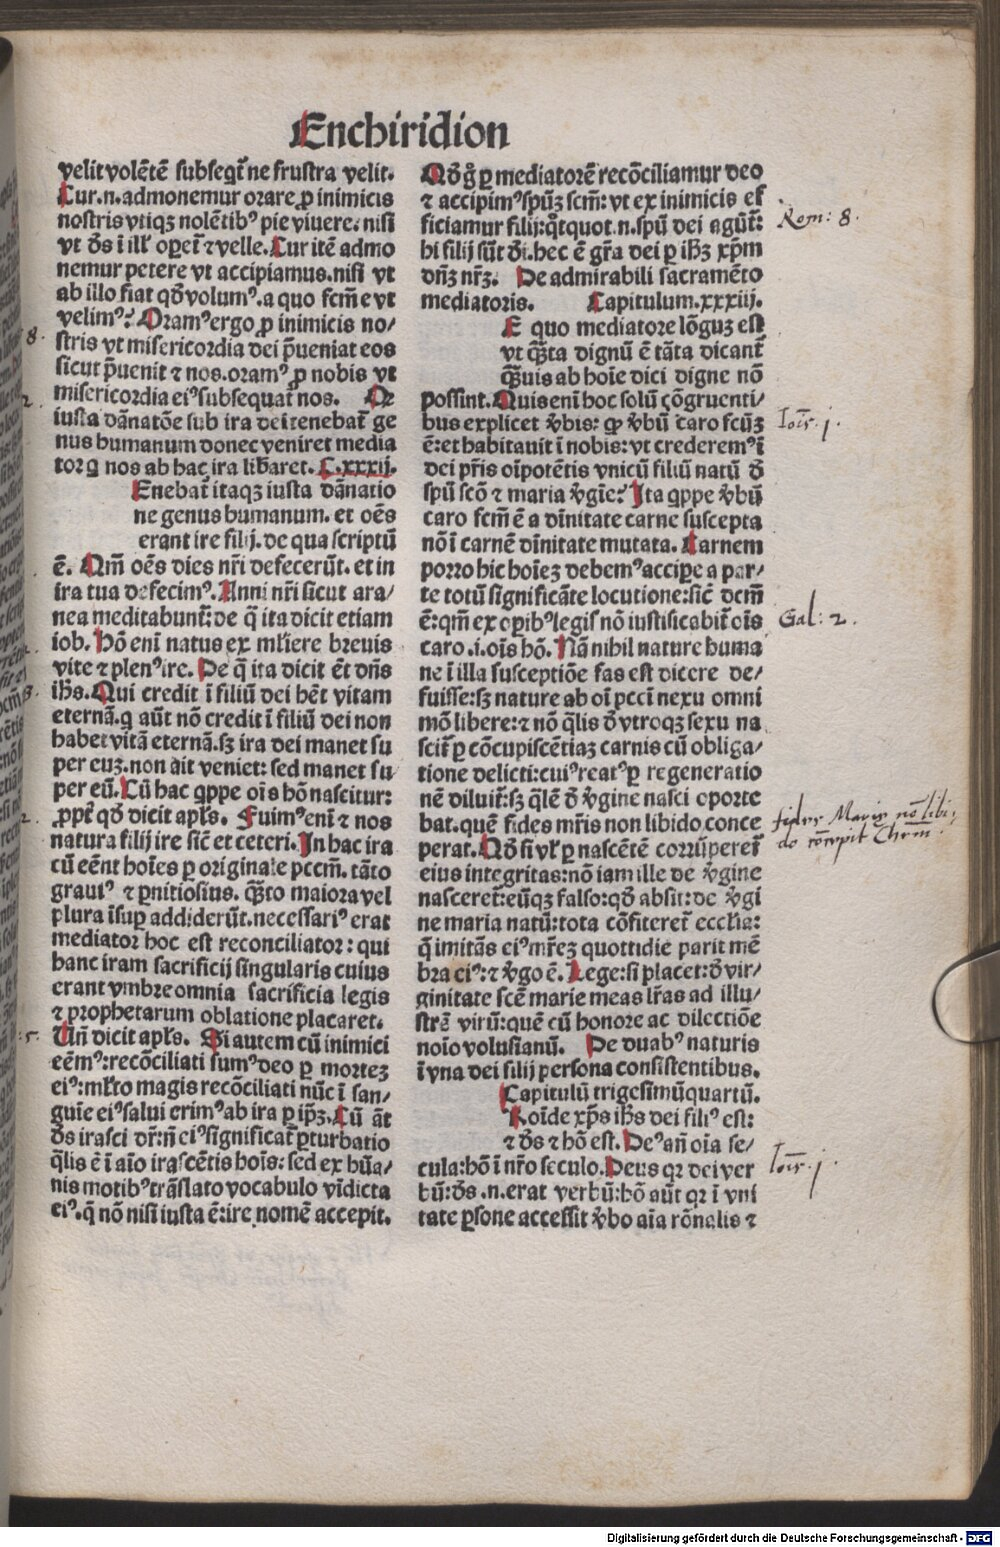 Enchiridion
velit volētē subseqt̄ ne frustra velit.
Cur .n. admonemur orare ꝓ inimicis
nostris vtiqꝫ nolētibꝰ pie viuere: nisi
vt d̄s ī ill' oꝑet᷑ ⁊ velle. Cur itē admo
nemur petere vt accipiamus. nisi vt
ab illo fiat qd̄ volumꝰ. a quo fcm̄ e vt
velimꝰ? Oramꝰ ergo ꝓ inimicis no/
stris vt misericordia dei p̄ueniat eos
sicut p̄uenit ⁊ nos. oramꝰ ꝓ nobis vt
misericordia eiꝰ subsequat᷑ nos. Qr
iusta dānatōe sub ira dei tenebat᷑ ge
nus humanum donec veniret media
tor q nos ab hac ira lib̄aret. C. xxxij.
Enebat᷑ itaqꝫ iusta dānatio
ne genus humanum. et oēs
erant ire filij. de qua scriptū
ē. Qm̄ oēs dies nr̄i defecerūt. et in
ira tua defecimꝰ. Anni nr̄i sicut ara/
nea meditabunt᷑: de q̄ ita dicit etiam
iob. Hō eni natus ex ml'iere breuis
vite ⁊ plenꝰ ire. De q̄ ita dicit ēt dn̄s
ih̄s. Qui credit ī filiū dei hēt vitam
eternā. q aūt nō credit ī filiū dei non
habet vitā eternā. sꝫ ira dei manet su
per euꝫ. non ait veniet: sed manet su/
per eū. Cū hac qppe oīs hō nascitur:
ꝓpt᷑ qd̄ dicit apl's. Fuimꝰ em̄ ⁊ nos
natura filij ire sic̄ et ceteri. In hac ira
cū eēnt hoīes ꝑ originale pccm̄. tāto
grauiꝰ ⁊ ꝑnitiosius. q̄ȝto maiora vel
plura īsuꝑ addiderūt. necessariꝰ erat
mediator hoc est reconciliator: qui
hanc iram sacrificij singularis cuius
erant vmbre omnia sacrificia legis
⁊ prophetarum oblatione placaret.
Un̄ dicit apl's. Si autem cū inimici
eēmꝰ: recōciliati sumꝰ deo ꝑ morteꝫ
eiꝰ: ml'to magis recōciliati nūc ī san/
guīe eiꝰ salui erimꝰ ab ira ꝑ ip̄ꝫ. Cū āt
d̄s irasci dr̄: n̄ eiꝰ significat᷑ ꝑturbatio
q̄lis ē ī aīo irascētis hoīs: sed ex hūa/
nis motibꝰ trāslato vocabulo vīdicta
eiꝰ. q̄ nō nisi iusta ē: ire nomē accepit.
Qd̄ g̊ ꝑ mediatorē recōciliamur deo
⁊ accipimꝰ spūꝫ scm̄: vt ex inimicis ef
ficiamur filij: qͦtquot .n. spū dei agūt᷑:
hi filij sūt d̄i. hec ē gr̄a dei ꝑ ih̄ꝫ xp̄m
dn̄ꝫ nr̄ꝫ. De admirabili sacramēto
mediatoris. Capitulum. xxxiij.
E quo mediatore lōguꝫ est
vt q̄ȝta dignū ē tāta dicant᷑
q̄ȝuis ab hoīe dici digne nō
possint. Quis enī hoc solū cōgruenti/
bus explicet v̄bis: qꝛ v̄bū caro fcūꝫ
ē: et habitauit ī nobis: vt crederemꝰ ī
dei pr̄is oīpotētis vnicū filiū natū d̄
spū scō ⁊ maria v̄gīe? Ita qppe v̄bū
caro fcm̄ ē a dīnitate carne suscepta
nō ī carnē dīnitate mutata. Carnem
porro hic hoīeꝫ debemꝰ acciꝑe a par/
te totū significāte locutione: sic̄ dcm̄
ē: qm̄ ex oꝑibꝰ legis nō iustificabit᷑ oīs
caro .i. oīs hō. Nā nihil nature huma
ne ī illa susceptiōe fas est dicere de/
fuisse: sꝫ nature ab oī pcci nexu omni
mō libere: ⁊ nō q̄lis d̄ vtroqꝫ sexu na
scit᷑ ꝑ cōcupiscētiaꝫ carnis cū obliga/
tione delicti: cuiꝰ reatꝰ ꝑ regeneratio
nē diluit᷑: sꝫ q̄lē d̄ v̄gine nasci oporte
bat. quē fides mr̄is non libido conce
perat. Qd̄ si vl' ꝑ nascētē corrūperet᷑
eius integritas: nō iam ille de v̄gine
nasceret᷑: eūqꝫ falso: qd̄ absit: de v̄gi
ne maria natū: tota cōfiteret᷑ eccl'ia:
q̄ imitās eiꝰ mr̄eꝫ quottidie parit mē
bra eiꝰ: ⁊ v̄go ē. Lege: si placet: d̄ vir/
ginitate scē marie meas lr̄as ad illu/
strē virū: quē cū honore ac dilectiōe
noīo volusianū. De duabꝰ naturis
ī vna dei filij persona consistentibus.
Capitulū trigesimūquartū.
Roīde xp̄s ih̄s dei filiꝰ est:
⁊ d̄s ⁊ hō est. Deꝰ an̄ oīa se/
cula: hō ī nr̄o seculo. Deus qꝛ dei ver
bū: d̄s .n. erat verbū: hō aūt qꝛ ī vni
tate ꝑsone accessit v̄bo aīa rōnalis ⁊
Rom: 8.
Ioīs. j.
Gal: 2.
fides Mariæ nō libi:
do cōcepit Chrm̄.
Ioīs. j.
8.
2.
8.
2.
5.
Digitalisierung gefördert durch die Deutsche Forschungsgemeinschaft - DFG